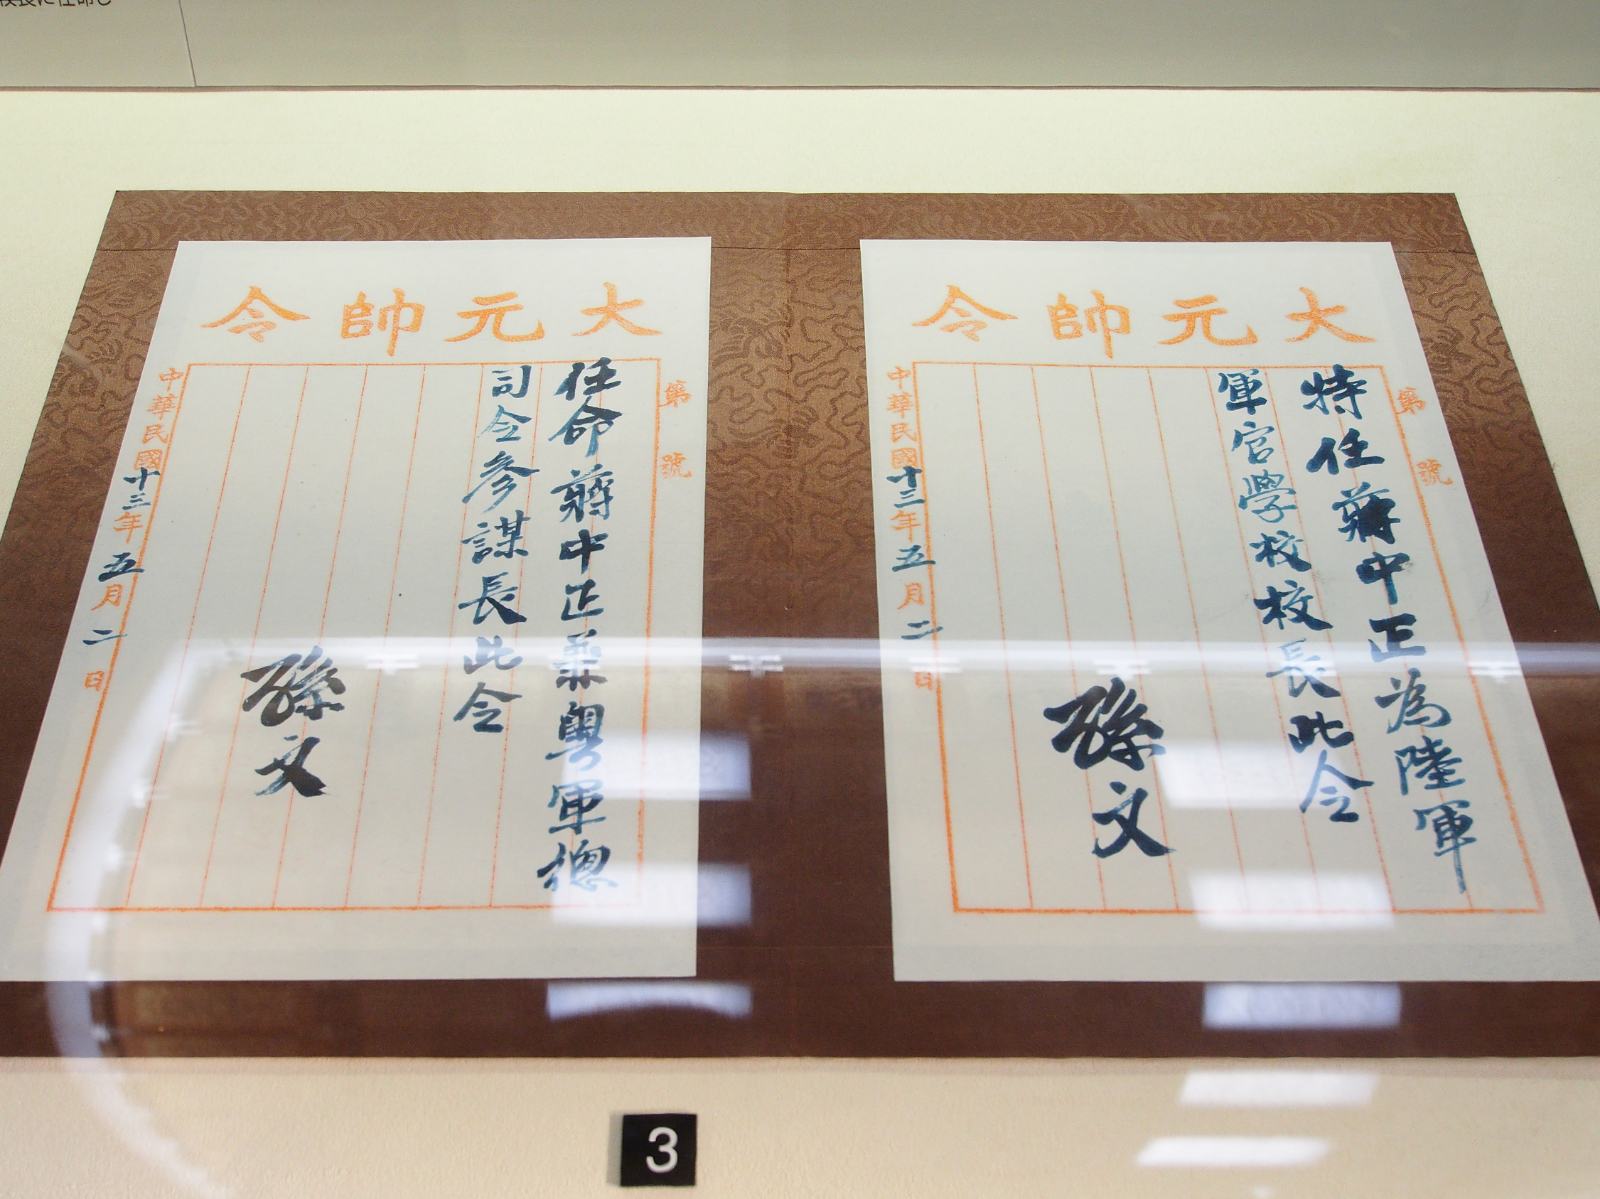 校長に任命し
大元帥令
第 號
特任蔣中正為陸軍
軍官學校校長此令
孫文
中華民國十三年五月二日
大元帥令
第 號
任命蔣中正兼粵軍總
司令參謀長此令
孫文
中華民國十三年五月二日
3